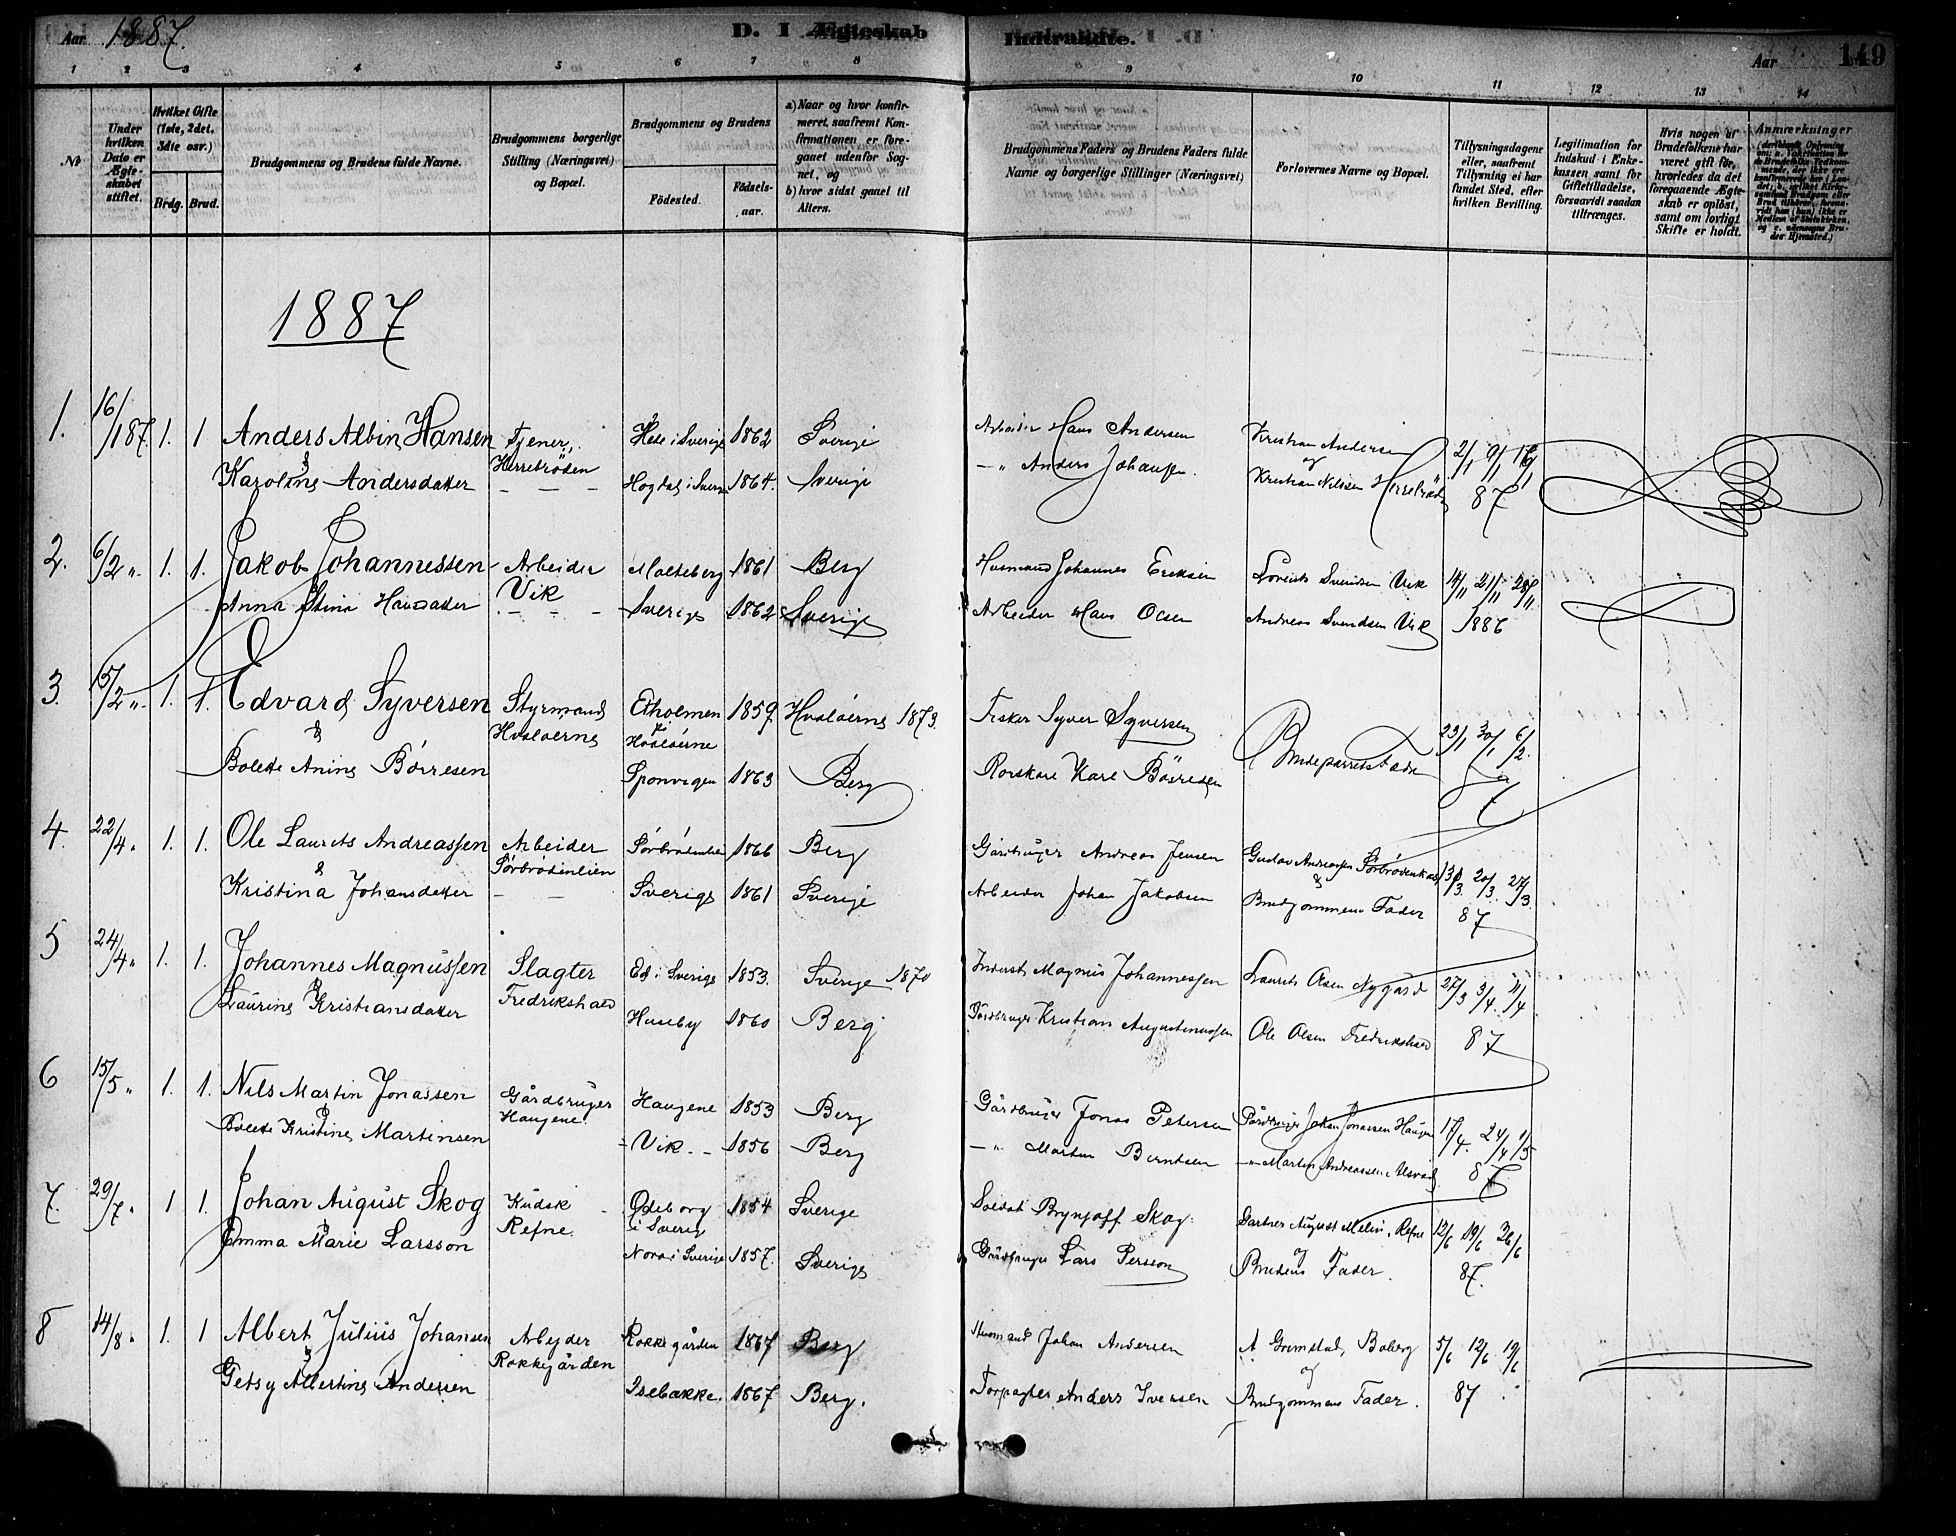 Aar 1887.
D. I Ægteskab Indtraadte.
Aar 149
1 2 3 4 5 6 7 8 9 10 11 12 13 14
No
Under hvilken Dato er Ægteskabet stiftet.
Hvilket Gifte (1ste, 2det, 3die osv.)
Brdg. Brud.
Brudgommens og Brudens fulde Navne.
Brudgommens borgerlige Stilling (Næringsvei) og Bopæl.
Brudgommens og Brudens
Fødested.
Fødselsaar.
a) Naar og hvor konfirmeret, saafremt Konfirmationen er foregaaet udenfor Sognet, og
b) hvor sidst gaaet til Alters.
Brudgommens Faders og Brudens Faders fulde Navne og borgerlige Stillinger (Næringsvei)
Forlovernes Navne og Bopæl.
Tillysningsdagene eller, saafremt Tillysning ei har fundet Sted, efter hvilken Bevilling.
Legitimation for Indskud i Enkekassen samt for Giftetilladelse, forsaavidt saadan tiltrænges.
Hvis nogen af Brudefolkene har været gift før, hvorledes da det foregaaende Ægteskab er opløst, samt om lovligt Skifte er holdt.
Anmærkninger
1887
1. 16/1 87. 1. 1 Anders Albin Hansen Tjener, Hede i Sverige 1862 Sverige Arbeider Hans Andersen Kristian Andersen 2/1 9/1 16/1
& Herrebrøden og
Karoline Andersdatter – – – Hogdal i Sverige 1864. Sverige – " Anders Johansen. Kristian Nilsen Herrebrøden 87
2. 6/2 ". 1. 1. Jakob Johannessen Arbeider Malteberg 1861 Berg Husmand Johannes Eriksen Lorents Svendsen Vik 14/11 21/11 28/11
Vik
Anna Stina Hansdatter – – – Sverige 1862 Sverige Arbeider Hans Olsen Andreas Svendsen Vik 1886
3. 15/2 ". 1. 1. Edvard Syversen Styrmand Edholmen 1859 Hvaløerne 1873. Fisker Syver Syversen 23/1 30/1 6/2.
& Hvaløerne Hvaløerne Brudeparrets Fædre
Bolette Anine Børresen Sponvigen 1863 Berg Karl Börresen 87
4. 22/4 " 1. 1. Ole Laurits Andreassen Arbeider Sørbrødenlien 1866 Berg Gårdbruger Andreas Jensen Gustav Andreassen 13/3. 20/3. 27/3.
& Sørbrødenlien &
Kristina Johansdatter – – Sverige 1861 Sverige Arbeider Johan Jakobsen Brudgommens Fader 87
5 24/4 " 1. 1. Johannes Magnussen Slagter Ed i Sverige 1853. Sverige 1870 Inderst Magnus Johannessen Laurits Olsen Nygård 27/3 3/4. 11/4
& Fredrikshald
Laurine Kristiansdatter Huseby 1860 Berg Gårdbruger Kristian Augustinussen Ole Olsen Fredrikshald 87
6 15/5 " 1. 1. Nils Martin Jonassen Gårdbruger Haugene 1853 Berg Gårdbruger Jonas Petersen Gårdbruger Johan Jonassen Haugene 17/4. 24/4 1/5
& Haugene.
Bolette Kristine Martinsen – Vik. – 1856 Berg – " Martin Berntsen – " Martin Andreassen 87
7. 29/7 " 1 1. Johan August Skog Kudsk Ødeborg 1854 Sverige Soldat Brynjolf Skog. Gartner August Melin, Refne 12/6 19/6 26/6
& Refne. i Sverig og
Emma Marie Larsson Nora i Sverige 1857. Sverige Gårdbruger Lars Persson Brudens Fader. 87.
8 14/8 " 1. 1 Albert Julius Johansen Arbejder Rokkegården 1867 Berg Husmand Johan Andersen A Grimstad, Boberg 5/6 12/6 19/6
& Rokkegården og
Getsy Albertine Andersen Isebakke. 1867 Berg. Forpagter Anders Iversen Brudgommens Fader. 87